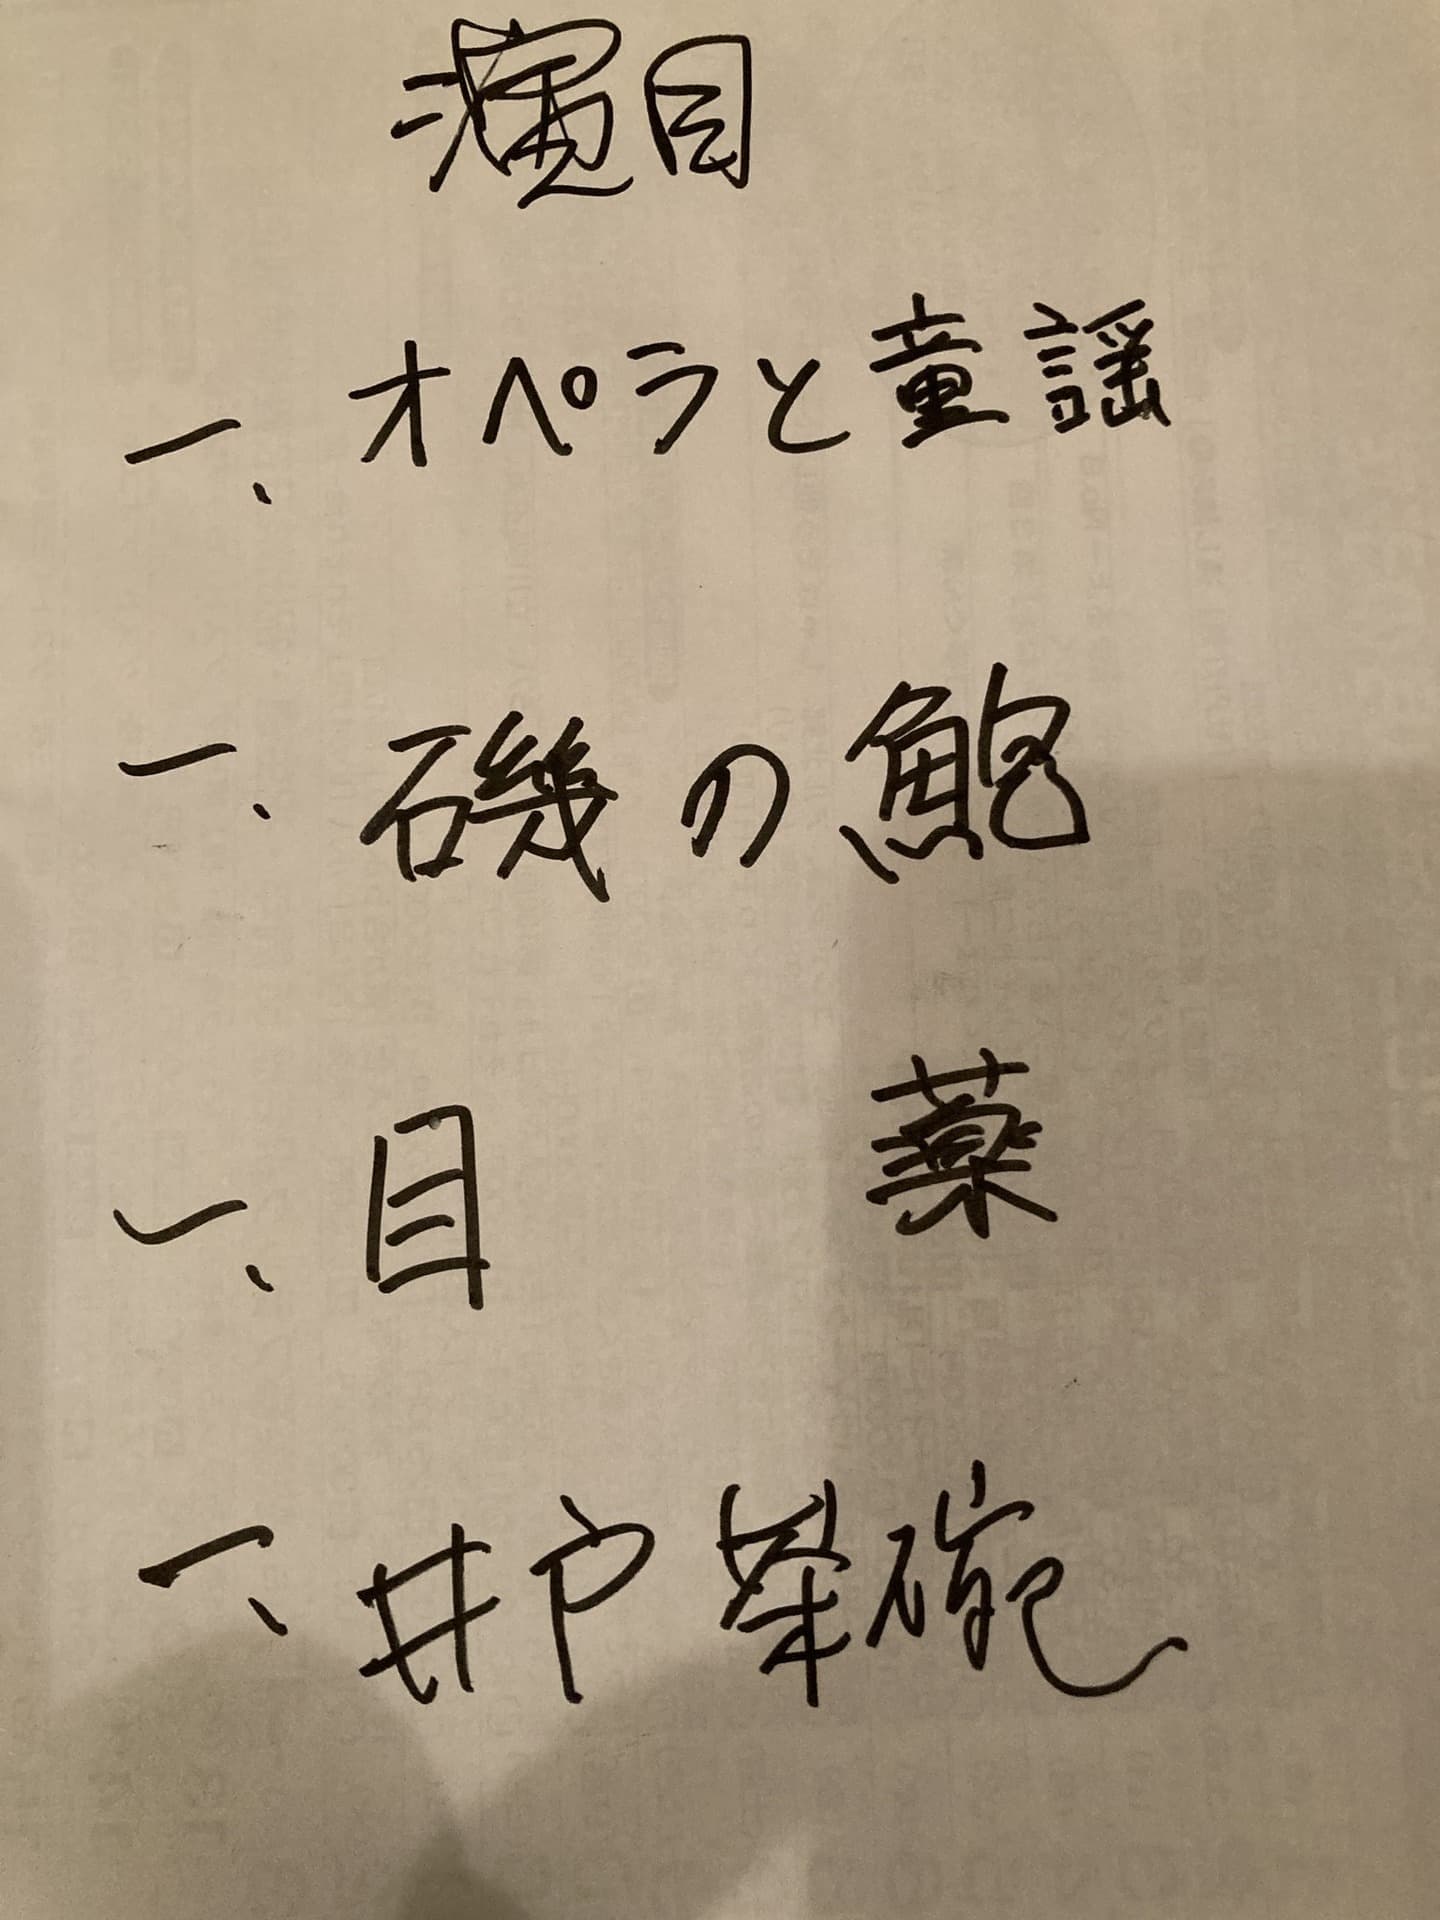 演目
一、オペラと童謡
一、磯の鮑
一、目 薬
一、井戸茶碗